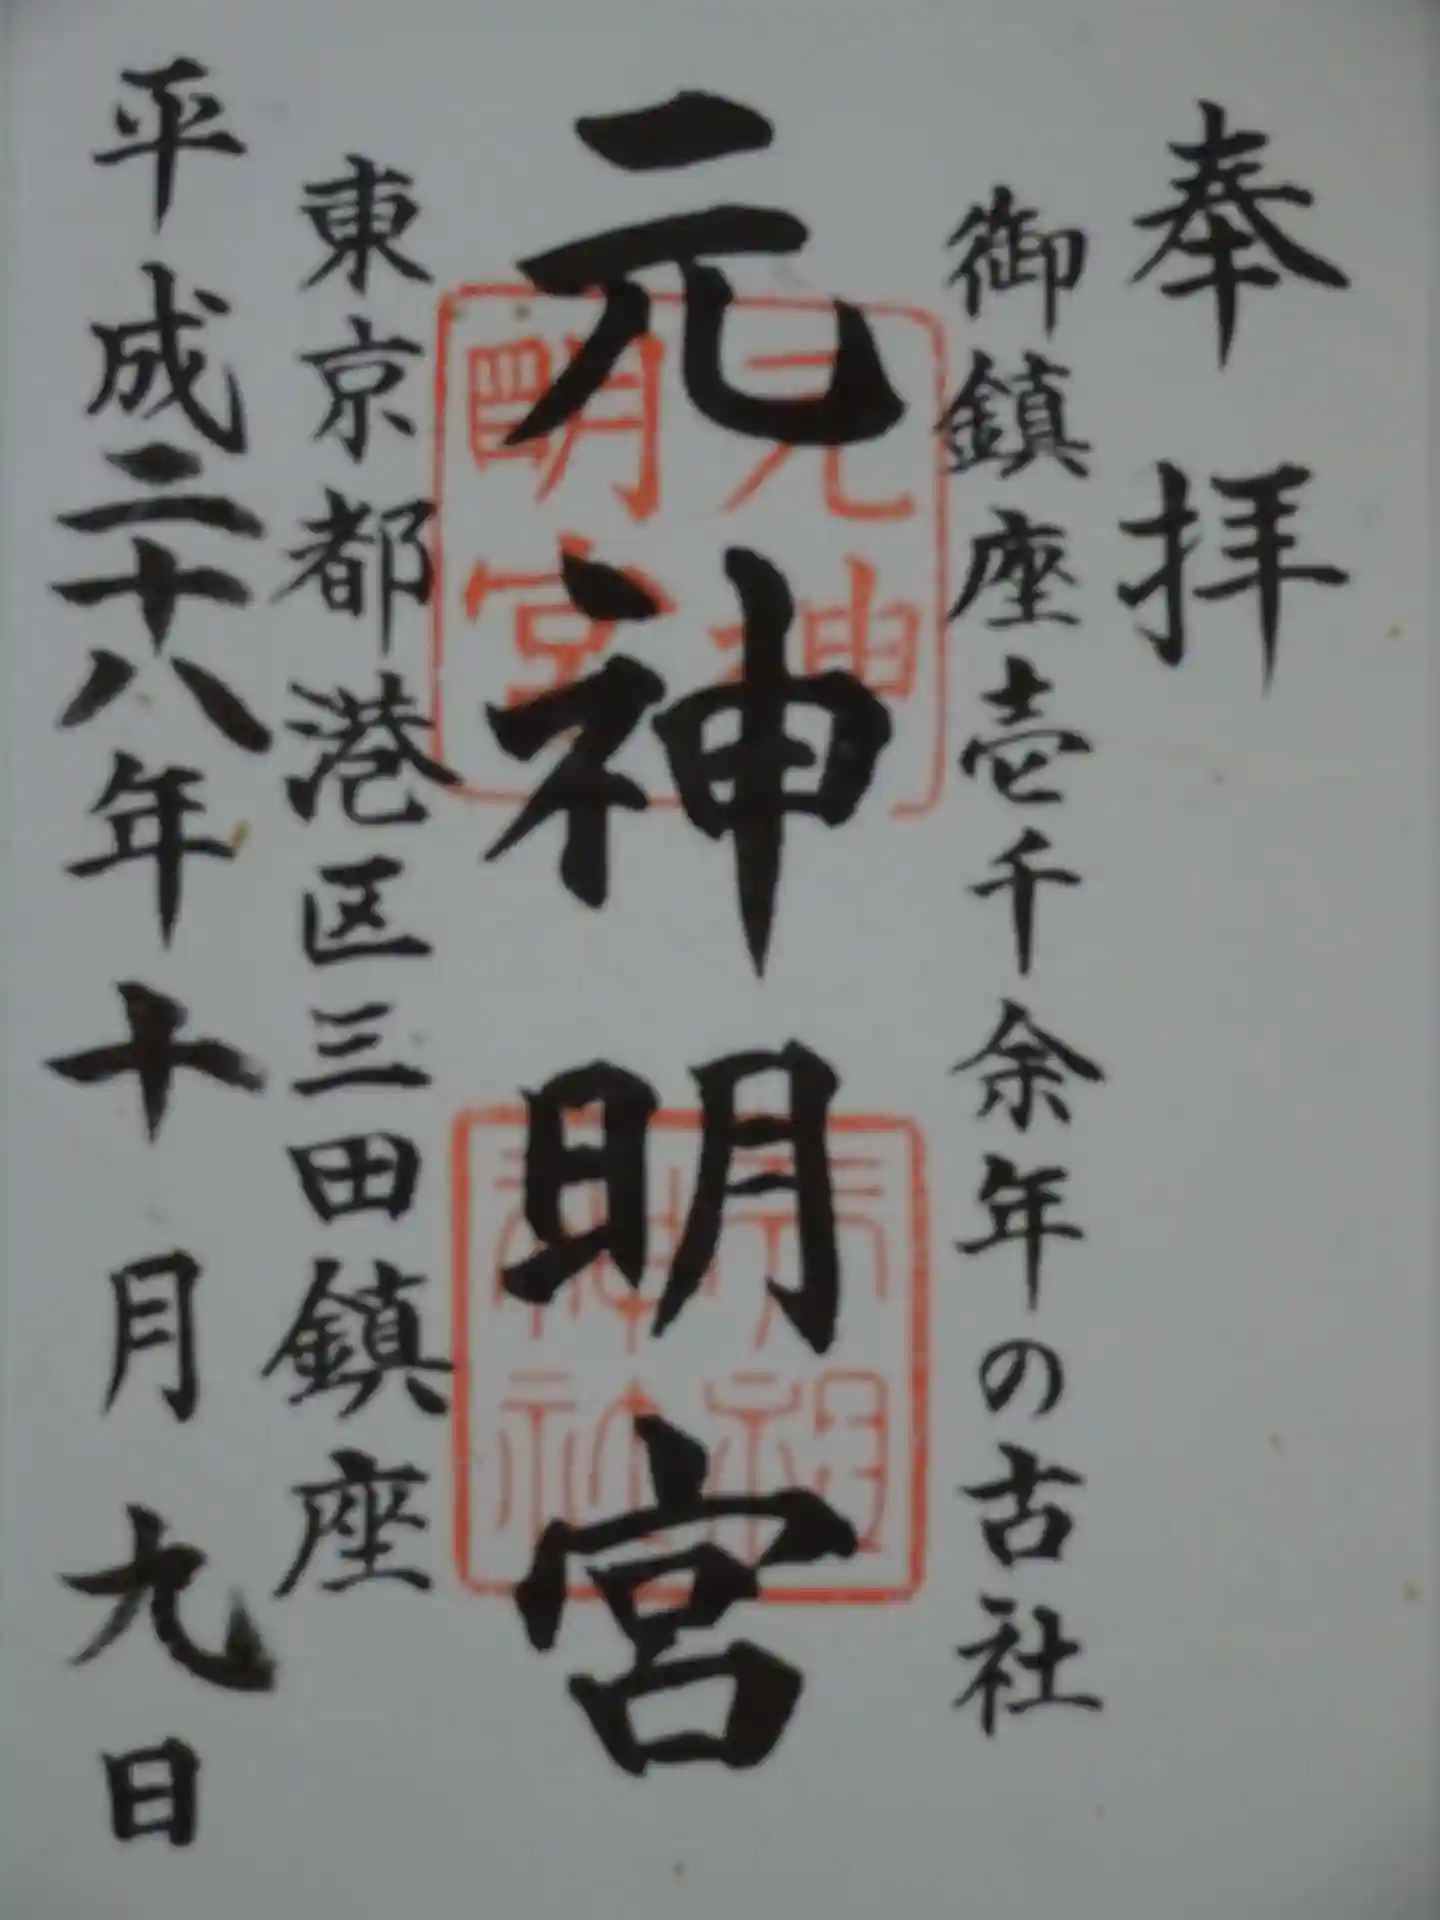 奉拝
御鎮座壱千余年の古社
元神明宮
元神
明宮
東京都港区三田鎮座
平成二十八年十月九日